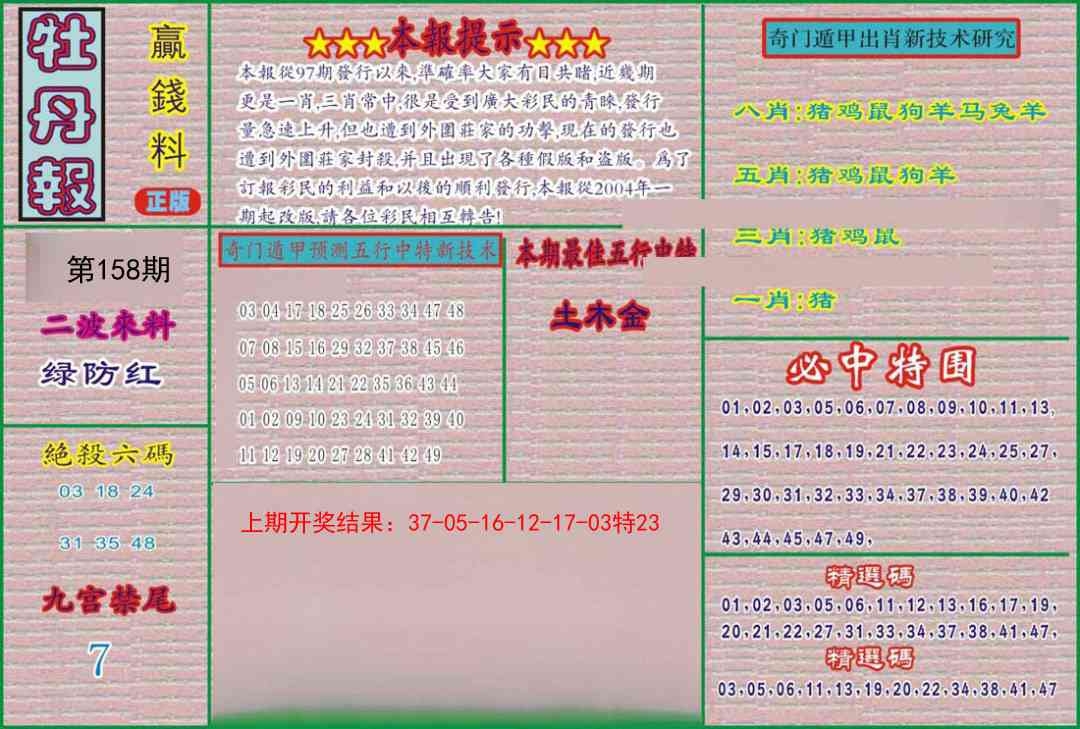 牡丹報
贏錢料
正版
★★★本報提示★★★
本報從97期發行以來,準確率大家有目共睹,近幾期
更是一肖,三肖常中,很是受到廣大彩民的青睞,發行
量急速上升,但也遭到外圍莊家的功擊,現在的發行也
遭到外圍莊家封殺,并且出現了各種假版和盗版。爲了
訂報彩民的利益和以後的順利發行,本報從2004年一
期起改版,請各位彩民相互轉告!
奇门遁甲出肖新技术研究
八肖:猪鸡鼠狗羊马兔羊
五肖:猪鸡鼠狗羊
三肖:猪鸡鼠
一肖:猪
第158期
二波來料
绿防红
奇门遁甲预测五行中特新技术
03 04 17 18 25 26 33 34 47 48
07 08 15 16 29 32 37 38 45 46
05 06 13 14 21 22 35 36 43 44
01 02 09 10 23 24 31 32 39 40
11 12 19 20 27 28 41 42 49
本期最佳五行中特
土木金
必中特围
01,02,03,05,06,07,08,09,10,11,13,
14,15,17,18,19,21,22,23,24,25,27,
29,30,31,32,33,34,37,38,39,40,42
43,44,45,47,49,
絕殺六碼
03 18 24
31 35 48
九宫禁尾
7
上期开奖结果：37-05-16-12-17-03特23
精選碼
01,02,03,05,06,11,12,13,16,17,19,
20,21,22,27,31,33,34,37,38,41,47,
精選碼
03,05,06,11,13,19,20,22,34,38,41,47